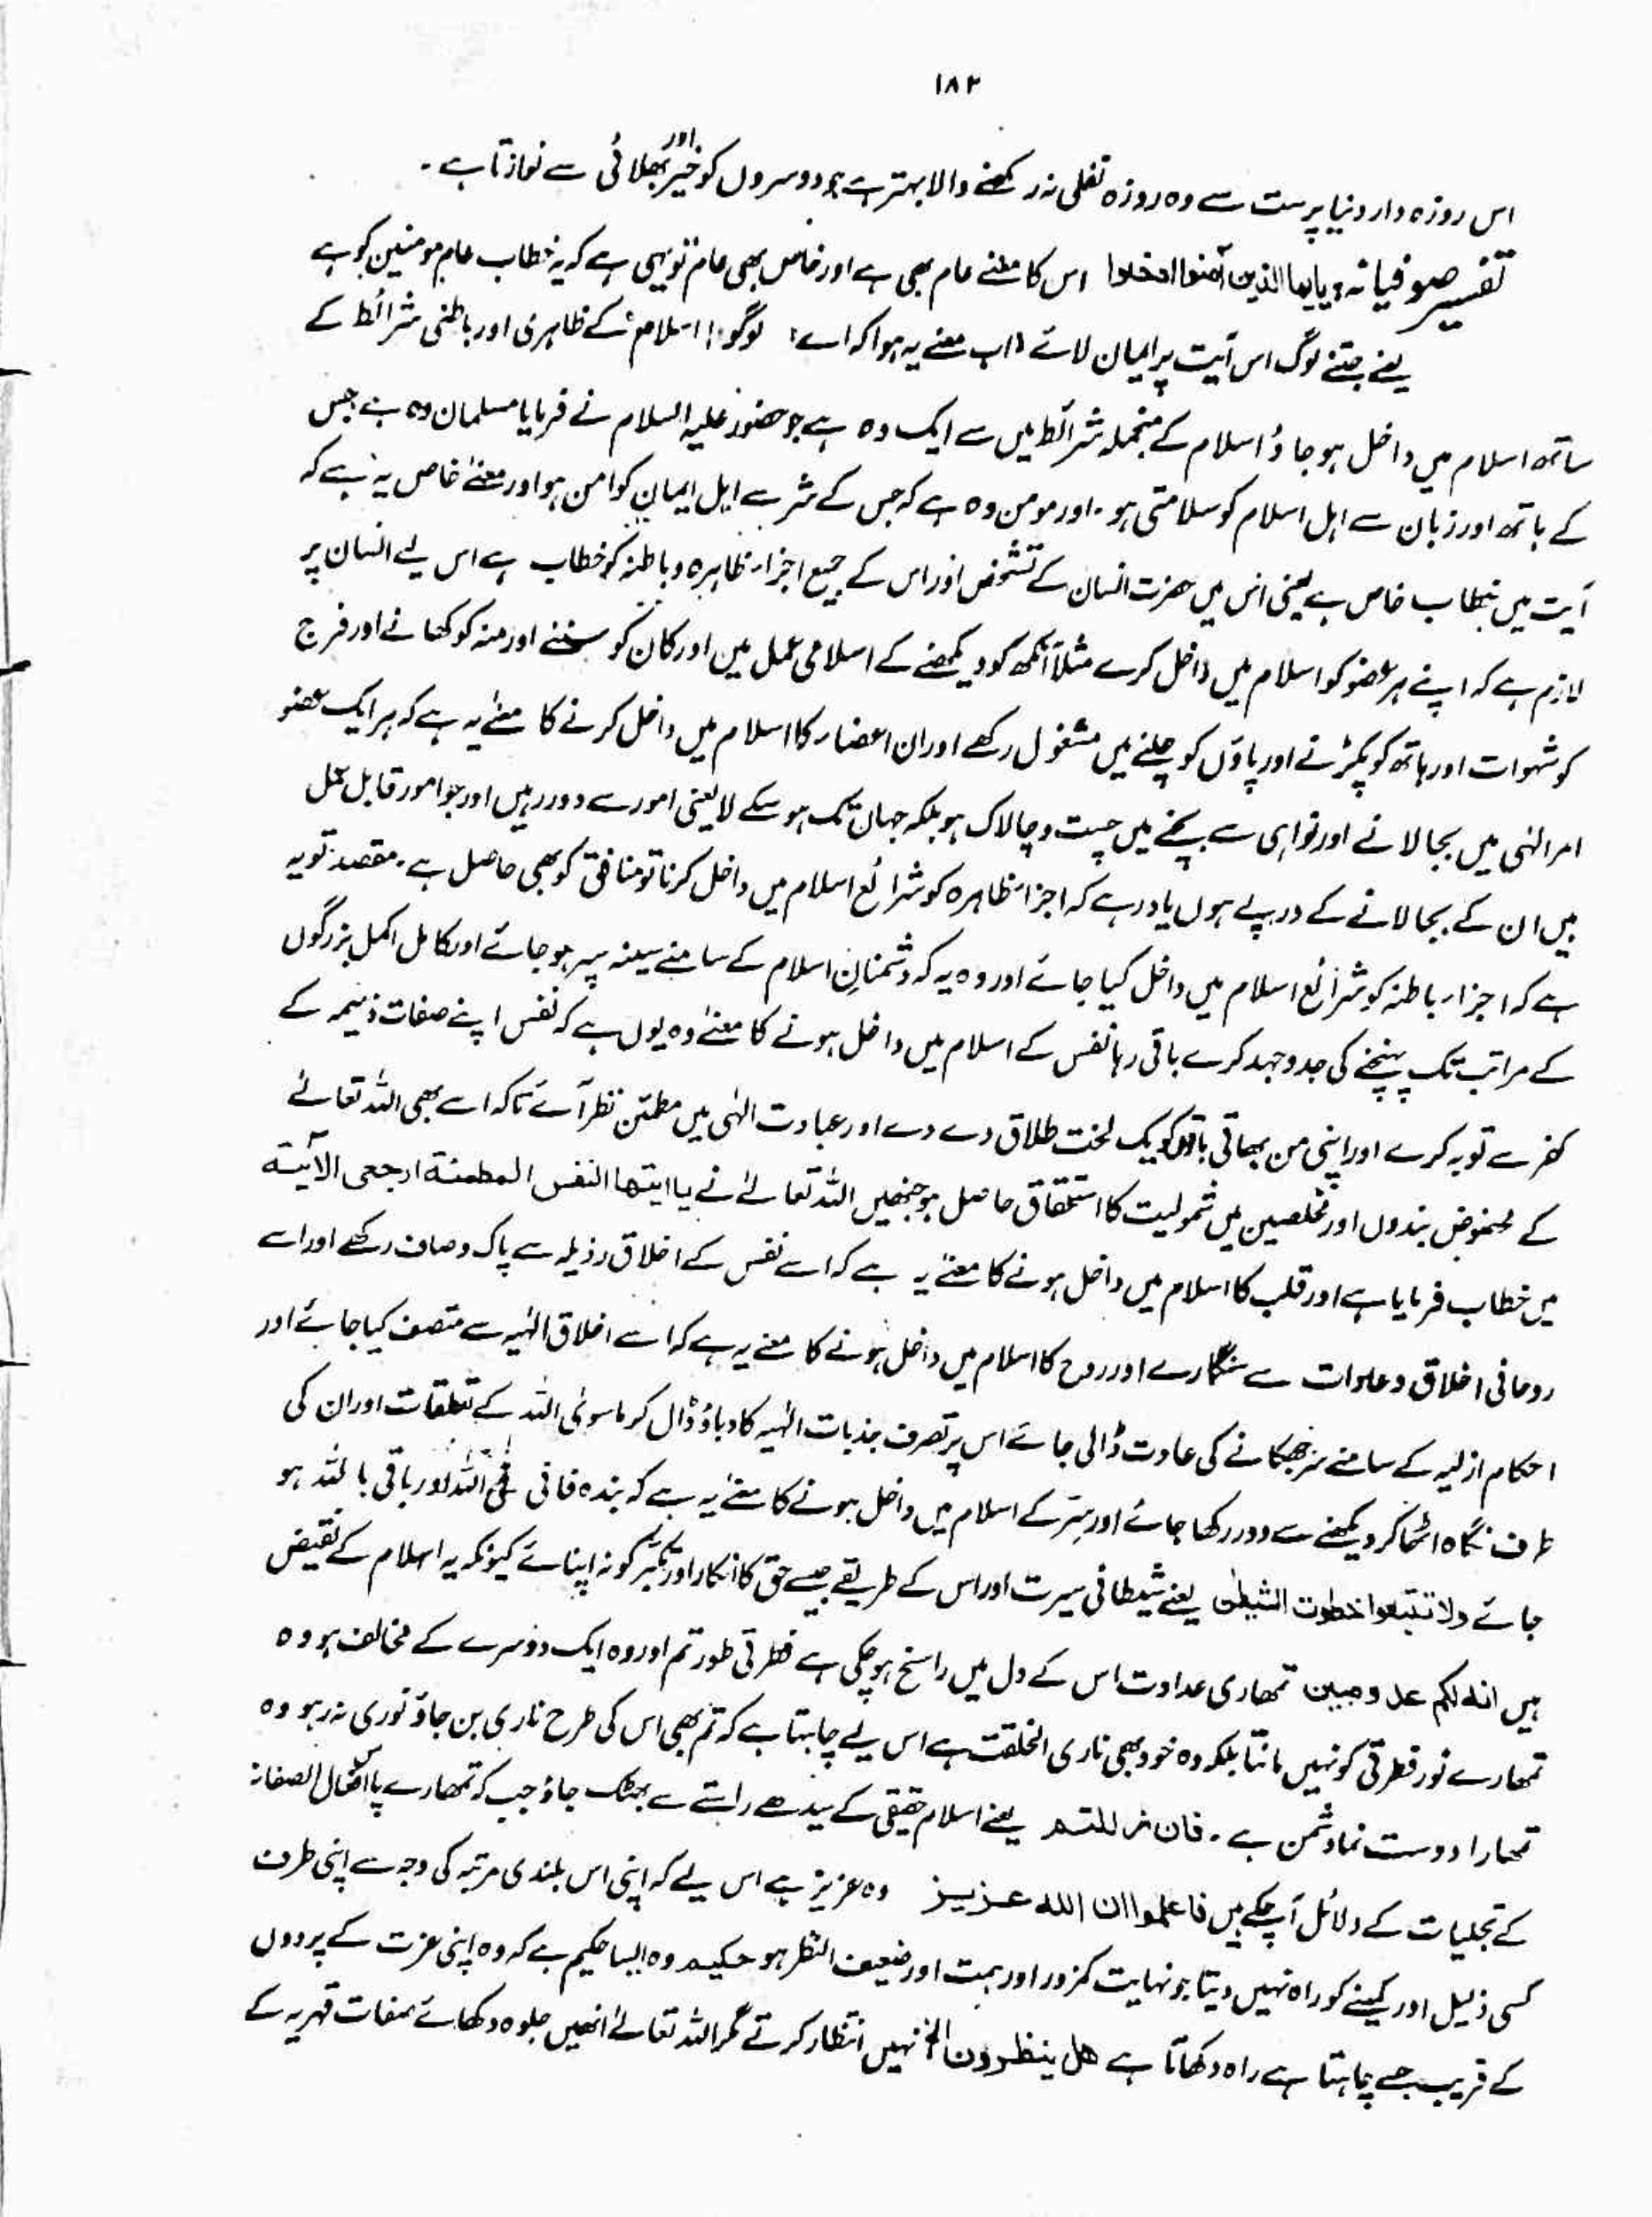 ۱۸۲
اس روزہ دار دنیا پرست سے وہ روزہ نفلی نہ رکھنے والا بہتر ہے جو دوسروں کو خیر اور بھلائی سے نوازتا ہے۔
تفسیر صوفیانہ ویایھا الذین آمنوا ادخلوا اس کا معنے عام بھی ہے اور خاص بھی عام تو یہی ہے کہ یہ خطاب عام مومنین کو ہے
یعنے جتنے لوگ اس آیت پر ایمان لائے اب معنے یہ ہوا کہ اے لوگو! اسلام کے ظاہری اور باطنی شرائط کے
ساتھ اسلام میں داخل ہو جاؤ اسلام کے منجملہ شرائط میں سے ایک وہ ہے جو حضور علیہ السلام نے فرمایا مسلمان وہ ہے جس
کے ہاتھ اور زبان سے اہل اسلام کو سلامتی ہو۔ اور مومن وہ ہے کہ جس کے شر سے اہل ایمان کو امن ہو اور معنےٰ خاص یہ ہے کہ
آیت میں خطاب خاص ہے یعنی اس میں حضرت انسان کے تشخص اور اس کے جمیع اجزاء ظاہرہ و باطنہ کو خطاب ہے اس لیے انسان پر
لازم ہے کہ اپنے ہر عضو کو اسلام میں داخل کرے مثلاً آنکھ کو دیکھنے کے اسلامی عمل میں اور کان کو سننے اور منہ کو کھانے اور فرج
کو شہوات اور ہاتھ کو پکڑنے اور پاؤں کو چلنے میں مشغول رکھے اور ان اعضاء کا اسلام میں داخل کرنے کا معنےٰ یہ ہے کہ ہر ایک عضو
امر الٰہی میں بجا لانے اور نواہی سے بچنے میں چست و چالاک ہو بلکہ جہاں تک ہو سکے لا یعنی امور سے دور رہیں اور جو امور قابل عمل
ہیں ان کے بجا لانے کے درپے ہوں یاد رہے کہ اجزاء ظاہرہ کو شرائع اسلام میں داخل کرنا تو منافق کو بھی حاصل ہے۔ مقصد تو یہ
ہے کہ اجزاء باطنہ کو شرائع اسلام میں داخل کیا جائے اور وہ یہ کہ دشمنانِ اسلام کے سامنے سینہ سپر ہو جائے اور کامل اکمل بزرگوں
کے مراتب تک پہنچنے کی جدوجہد کرے باقی رہا نفس کے اسلام میں داخل ہونے کا معنےٰ وہ یوں ہے کہ نفس اپنے صفات ذمیمہ کے
کفر سے توبہ کرے اور اپنی من بھاتی باتوں کو یک لخت طلاق دے دے اور عبادت الٰہی میں مطمئن نظر آئے تاکہ اسے بھی اللہ تعالےٰ
کے مخصوص بندوں اور مخلصین میں شمولیت کا استحقاق حاصل ہو جنھیں اللہ تعالےٰ نے یا ایتھا النفس المطمئنة ارجعی الآیة
میں خطاب فرمایا ہے اور قلب کا اسلام میں داخل ہونے کا معنےٰ یہ ہے کہ اسے نفس کے اخلاق رذیلہ سے پاک و صاف رکھے اور اسے
روحانی اخلاق و عادات سے سنگارے اور روح کا اسلام میں داخل ہونے کا معنے یہ ہے کہ اسے اخلاق الٰہیہ سے متصف کیا جائے اور
احکام ازلیہ کے سامنے سر جھکانے کی عادت ڈالی جائے اس پر تصرف جذبات الٰہیہ کا دباؤ ڈال کر ماسوی اللہ کے تعلقات اور ان کی
طرف نگاہ اٹھا کر دیکھنے سے دور رکھا جائے اور سِرّ کے اسلام میں داخل ہونے کا معنےٰ یہ ہے کہ بندہ فانی فی اللہ اور باقی باللہ ہو
جائے ولا تتبعوا خطوٰت الشیطٰن یعنے شیطانی سیرت اور اس کے طریقے جیسے حق کا انکار اور تکبر کو نہ اپنائے کیونکہ یہ اسلام کے نقیض
ہیں انہ لکم عدو مبین تمھاری عداوت اس کے دل میں راسخ ہو چکی ہے فطرتی طور تم اور وہ ایک دوسرے کے مخالف ہو وہ
تمھارے نور فطرتی کو نہیں مانتا بلکہ وہ خود بھی ناری الخلقت ہے اس لیے چاہتا ہے کہ تم بھی اس کی طرح ناری بن جاؤ نوری نہ رہو وہ
تمھارا دوست نما دشمن ہے۔ فان زللتم یعنے اسلام حقیقی کے سیدھے راستے سے بھٹک جاؤ جب کہ تمھارے پاس افعال الصفات
کے تجلیات کے دلائل آ چکے ہیں فاعلموا ان اللہ عزیز وہ عزیز ہے اس لیے کہ اپنی اس بلندی مرتبہ کی وجہ سے اپنی طرف
کسی ذلیل اور کمینے کو راہ نہیں دیتا جو نہایت کمزور اور ہمت اور ضعیف النظر ہو حکیم وہ ایسا حکیم ہے کہ وہ اپنی عزت کے پردوں
کے قریب جسے چاہتا ہے راہ دکھاتا ہے ھل ینظرون الخ نہیں انتظار کرتے مگر اللہ تعالےٰ انھیں جلوہ دکھائے صفات قہریہ کے